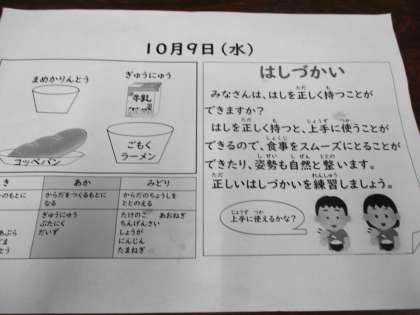 10月9日（水）
まめかりんとう
ぎゅうにゅう
牛乳
コッペパン
ごもく
ラーメン
はしづかい
みなさんは、はしを正しく持つことが
できますか？
はしを正しく持つと、上手に使うことが
できるので、食事をスムーズにとることが
できたり、姿勢も自然と整います。
正しいはしづかいを練習しましょう。
上手に使えるかな？
き
あか
みどり
のもとに
からだをつくるもとに
なる
からだのちょうしを
ととのえる
ぎゅうにゅう
ぶたにく
だいず
たけのこ あおねぎ
ちんげんさい
しょうが
にんじん
たまねぎ
あぶら